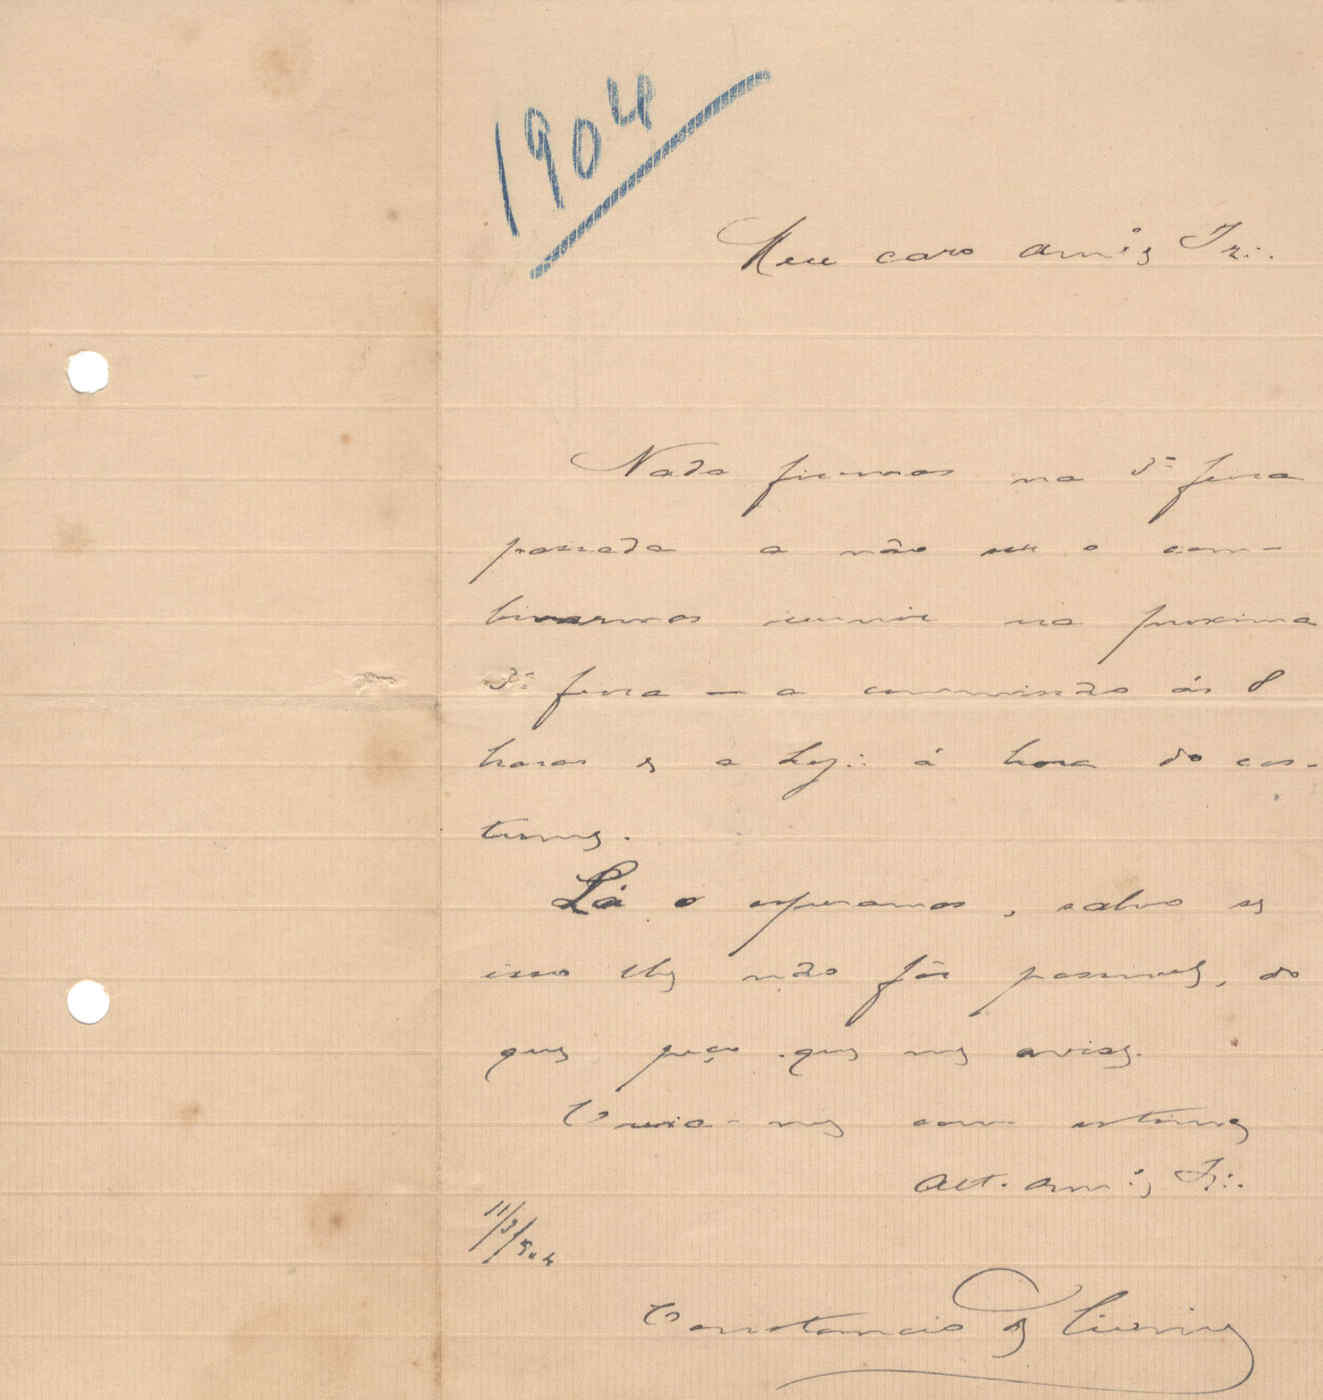 1904
Meu caro amº e Ir∴
Nada fizemos na 3ª feira
passada a não ser o com-
binarmos reunir na proxima
3ª feira — a commissão ás 8
horas e a Loj∴ á hora do cos-
tume.
Lá o esperamos, salvo se
isso lhe não fôr possivel, do
que peço que me avise.
Creia-me com estima
Att. amº e Ir∴
11/3/904
Constancio d'Oliveira